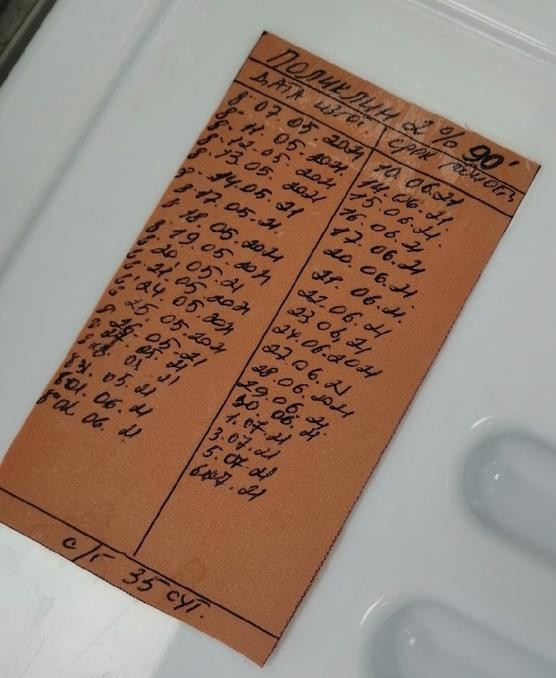 ПОЛИКЛИН 2% 90'
ДАТА ИЗГОТ. СРОК ГОДНОСТИ
8- 07 05. 2021 10.06.21
8- 11. 05. 2021 14.06.21
8- 12. 05. 2021 15.06.21.
8- 13.05 2021 16.06.21
8- 14.05. 21 17.06.21
8- 17.05.21. 20.06.21
8. 18 05.2021 21.06.21.
8. 19.05.2021 22.06.21
20 05.21 23 06.21
21. 05.2021 24.06.2021
24. 05.2021 27.06.21
25 05.2021 28.06.2021
8- 26.05.21 29.06.21
27.05.21 30.06.21
28 05. 21 1.07.21
31. 05.21 3.07.21
8-01. 06. 21 5.07.21
8-02. 06. 21 6.07.21
с/г 35 сут.